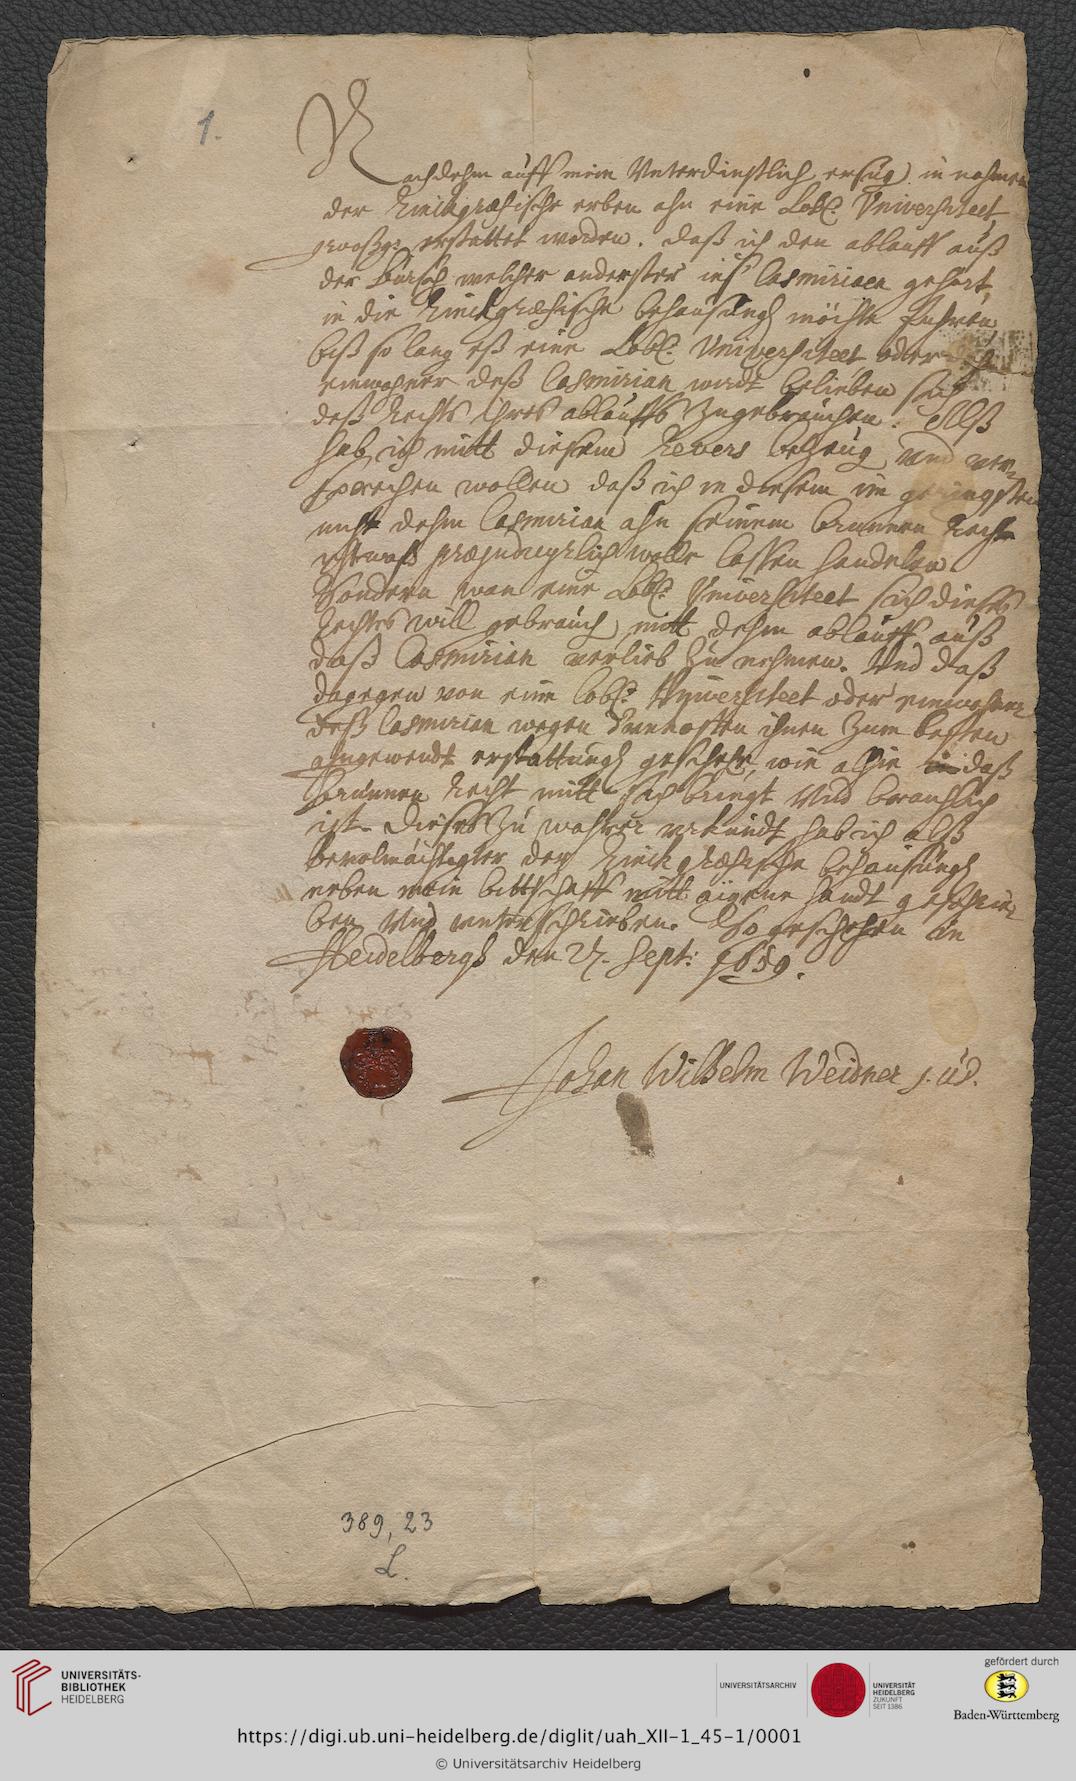 1.
Nachdehm auff mein Unterdinstlich ersuch in nahmen
der erben ahn eine Lobl. Universiteet
erstattet worden. daß ich den ablauff auß
der welcher anderster ins Casmiriaen gehört,
in die behausung möchte fuhren
biß so lang eß eine Lobl. Universiteet oder
einwohner deß Casmirian wirdt belieben sich
deß Rechts ihres ablauffs zugebrauchen. Alß
hab ich mitt diesem Revers bezeug und ver-
sprechen wollen daß ich in diesem im geringsten
nicht dehm Casmirian ahn seinem brunnen Recht
etwaß præjudicyrlich wolle lassen handelen
Sondern wan eine Lobl. Universiteet sich dieses
Rechtes will gebrauch, mitt dehm ablauff auß
daß Casmirian verlieb zu nehmen. Und daß
dagegen von eine lobl. Universiteet oder einwohner
deß Casmirian wegen Unkosten ihnen zum besten
angewendt erstattungh geschehe, wie alhie daß
brunnen Recht mitt sich bringt Und breuchlich
ist. Dieses zu wahrer urkundt hab ich alß
bevolmächtigter der behausungh
neben mein bittschafft mitt eigene handt geschrie-
ben Und unterschrieben. So geschehen in
Heidelbergh den 27. Sept: 1659.
Johan Wilhelm Weidner J.U.D.
389, 23
L.
UNIVERSITÄTS-
BIBLIOTHEK
HEIDELBERG
UNIVERSITÄTSARCHIV
UNIVERSITÄT
HEIDELBERG
ZUKUNFT
SEIT 1386
gefördert durch
Baden-Württemberg
https://digi.ub.uni-heidelberg.de/diglit/uah_XII-1_45-1/0001
© Universitätsarchiv Heidelberg